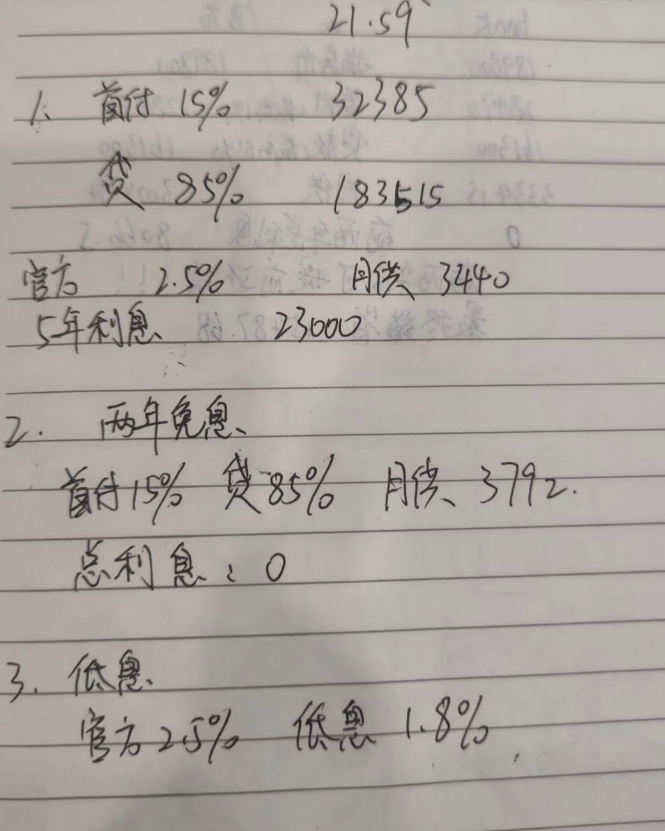 21.59
1、 首付 15% 32385
贷 85% 183515
官方 2.5% 月供 3440
5年利息 23000
2. 两年免息、
首付15% 贷85% 月供 3792.
总利息: 0
3. 低息
官方2.5% 低息 1.8%